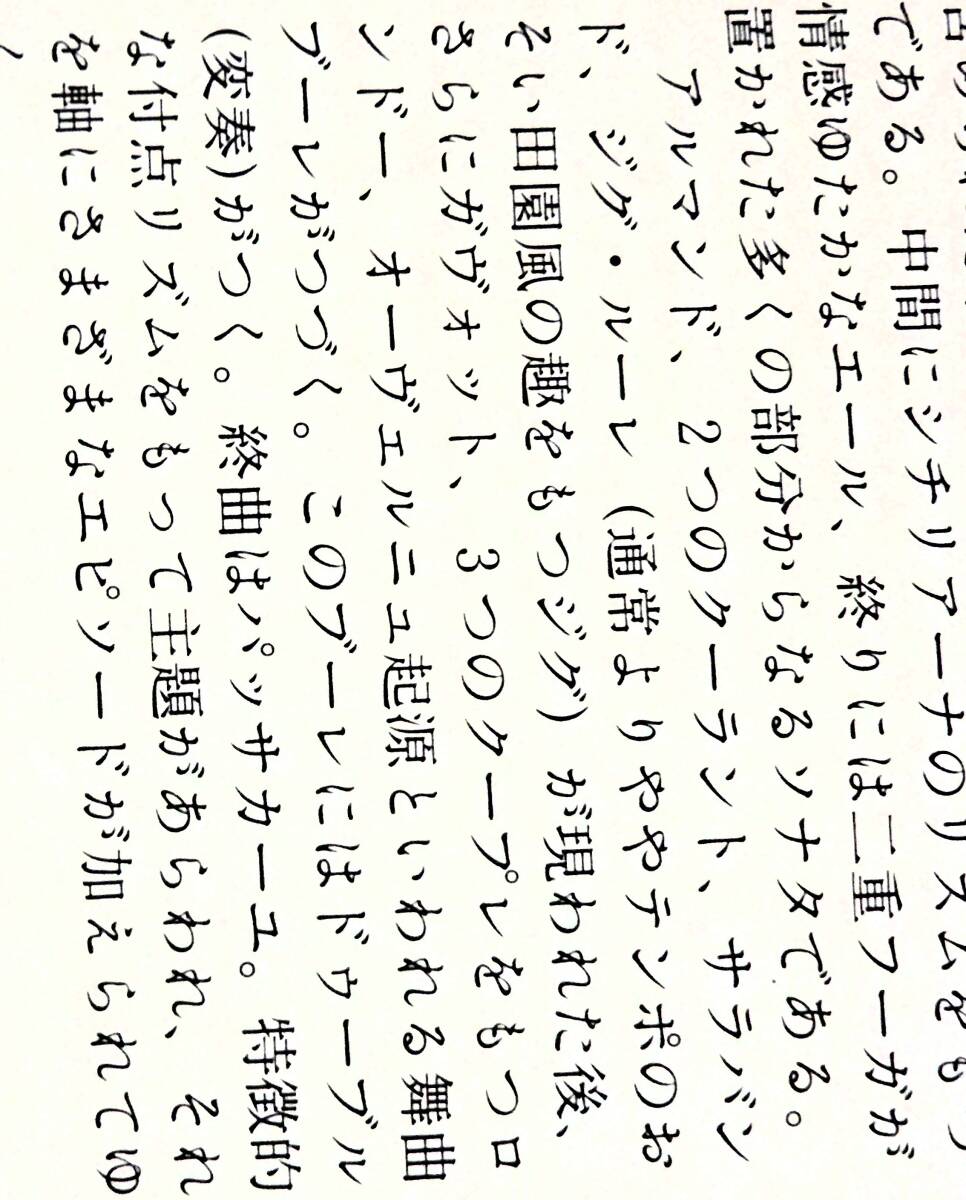 である。中間にシチリアーナのリズムをもつ
情感ゆたかなエール、終りには二重フーガが
置かれた多くの部分からなるソナタである。
アルマンド、2つのクーラント、サラバン
ド、ジグ・ルーレ(通常よりややテンポのお
そい田園風の趣をもつジグ)が現われた後、
さらにガヴォット、3つのクープレをもつロ
ンドー、オーヴェルニュ起源といわれる舞曲
ブーレがつづく。このブーレにはドゥーブル
(変奏)がつく。終曲はパッサカーユ。特徴的
な付点リズムをもって主題があらわれ、それ
を軸にさまざまなエピソードが加えられてゆ